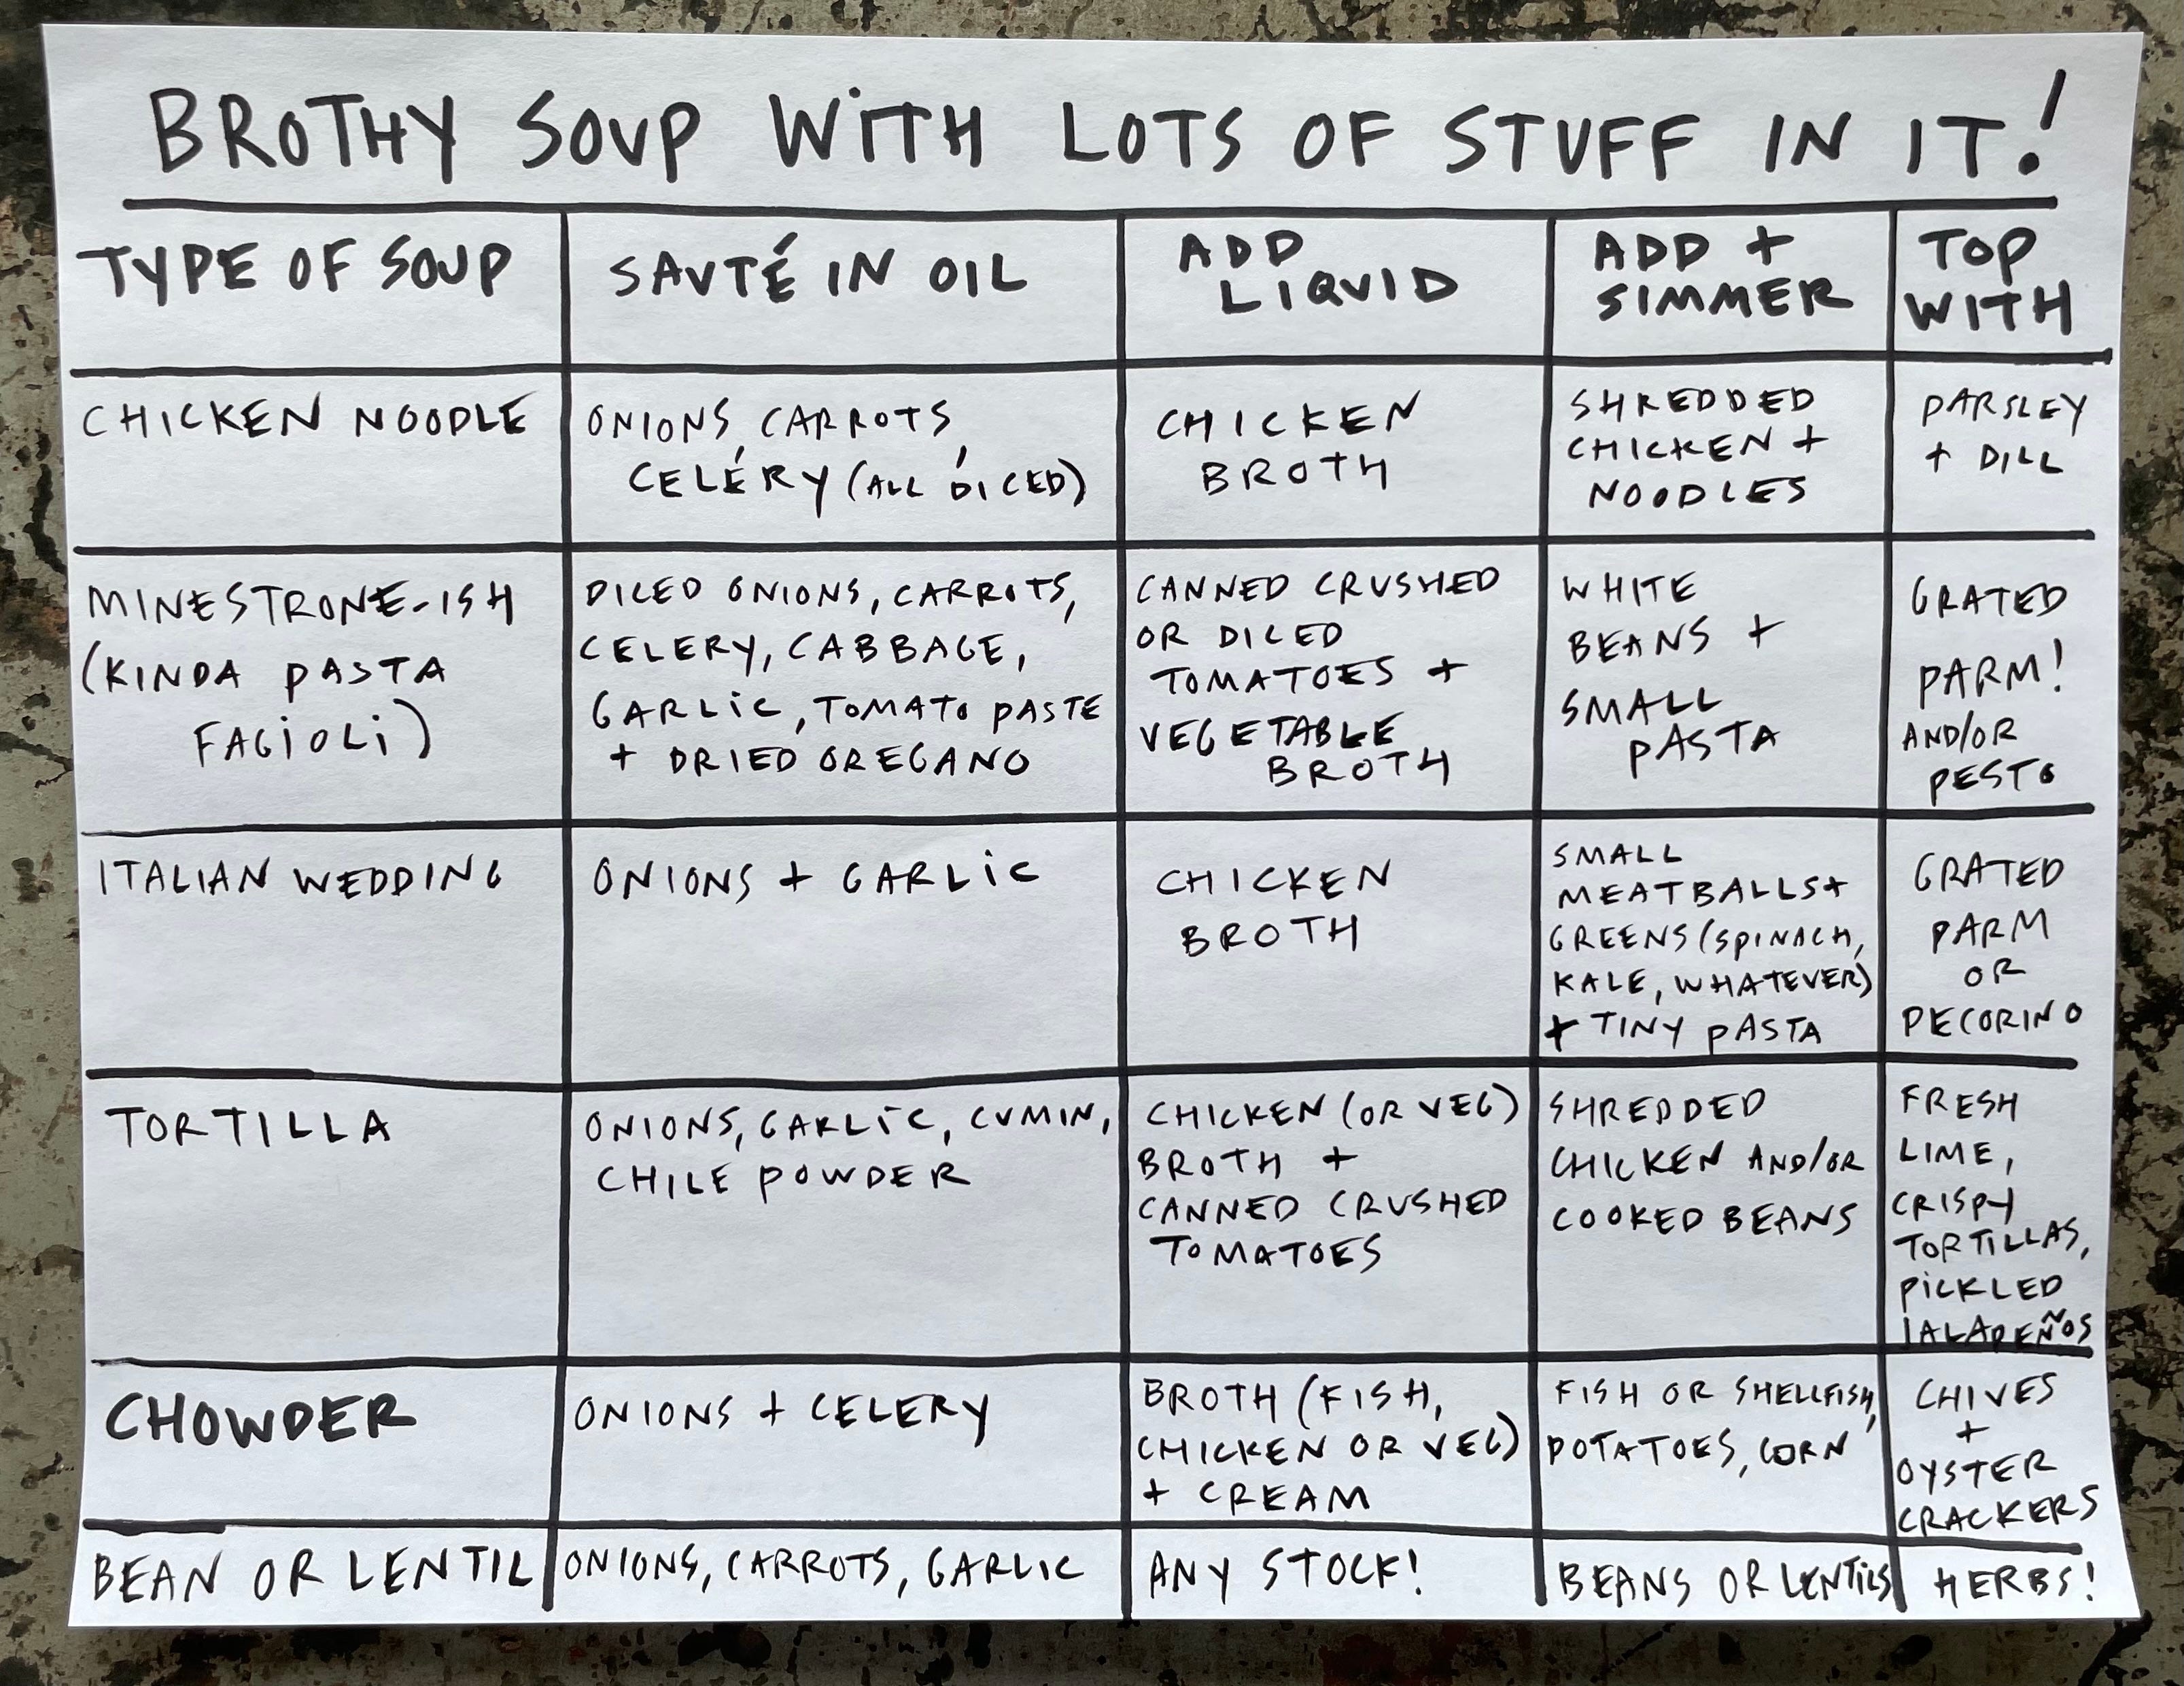 BROTHY SOUP WITH LOTS OF STUFF IN IT!
TYPE OF SOUP
SAUTÉ IN OIL
ADD
LIQUID
ADD +
SIMMER
TOP
WITH
CHICKEN NOODLE
ONIONS, CARROTS,
CELERY (ALL DICED)
CHICKEN
BROTH
SHREDDED
CHICKEN +
NOODLES
PARSLEY
+ DILL
MINESTRONE-ISH
(KINDA PASTA
FAGIOLI)
DICED ONIONS, CARROTS,
CELERY, CABBAGE,
GARLIC, TOMATO PASTE
+ DRIED OREGANO
CANNED CRUSHED
OR DICED
TOMATOES +
VEGETABLE
BROTH
WHITE
BEANS +
SMALL
PASTA
GRATED
PARM!
AND/OR
PESTO
ITALIAN WEDDING
ONIONS + GARLIC
CHICKEN
BROTH
SMALL
MEATBALLS +
GREENS (SPINACH,
KALE, WHATEVER)
+ TINY PASTA
GRATED
PARM
OR
PECORINO
TORTILLA
ONIONS, GARLIC, CUMIN,
CHILE POWDER
CHICKEN (OR VEG)
BROTH +
CANNED CRUSHED
TOMATOES
SHREDDED
CHICKEN AND/OR
COOKED BEANS
FRESH
LIME,
CRISPY
TORTILLAS,
PICKLED
JALAPEÑOS
CHOWDER
ONIONS + CELERY
BROTH (FISH,
CHICKEN OR VEG)
+ CREAM
FISH OR SHELLFISH,
POTATOES, CORN
CHIVES
+
OYSTER
CRACKERS
BEAN OR LENTIL
ONIONS, CARROTS, GARLIC
ANY STOCK!
BEANS OR LENTILS
HERBS!